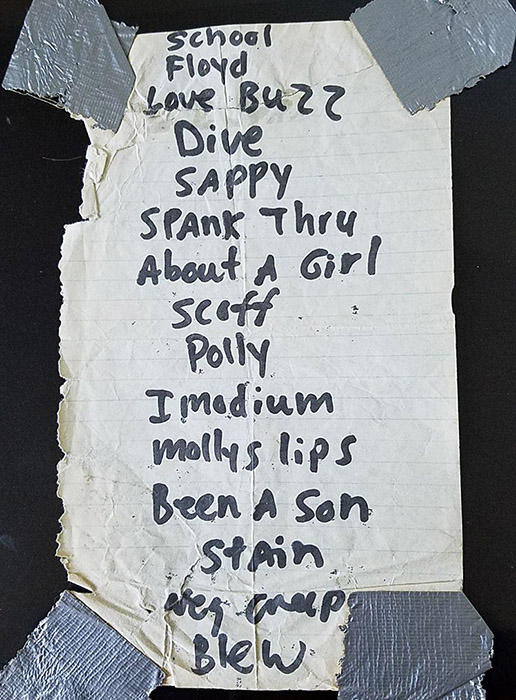 School
Floyd
Love Buzz
Dive
SAPPY
SPANK Thru
About A Girl
Scoff
Polly
Imodium
mollys lips
Been A Son
StAin
neg creep
Blew